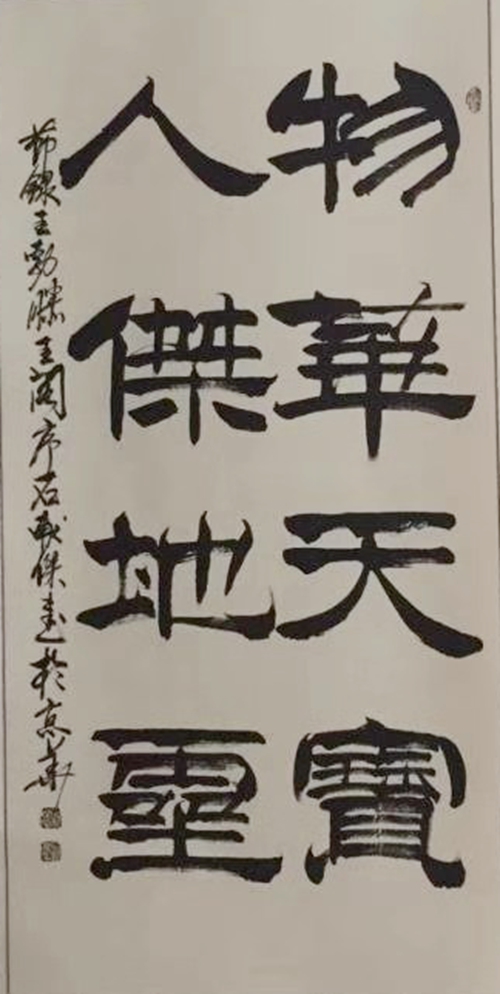 物華天寶
人傑地靈
節録王勃滕王閣序石武傑書於京華